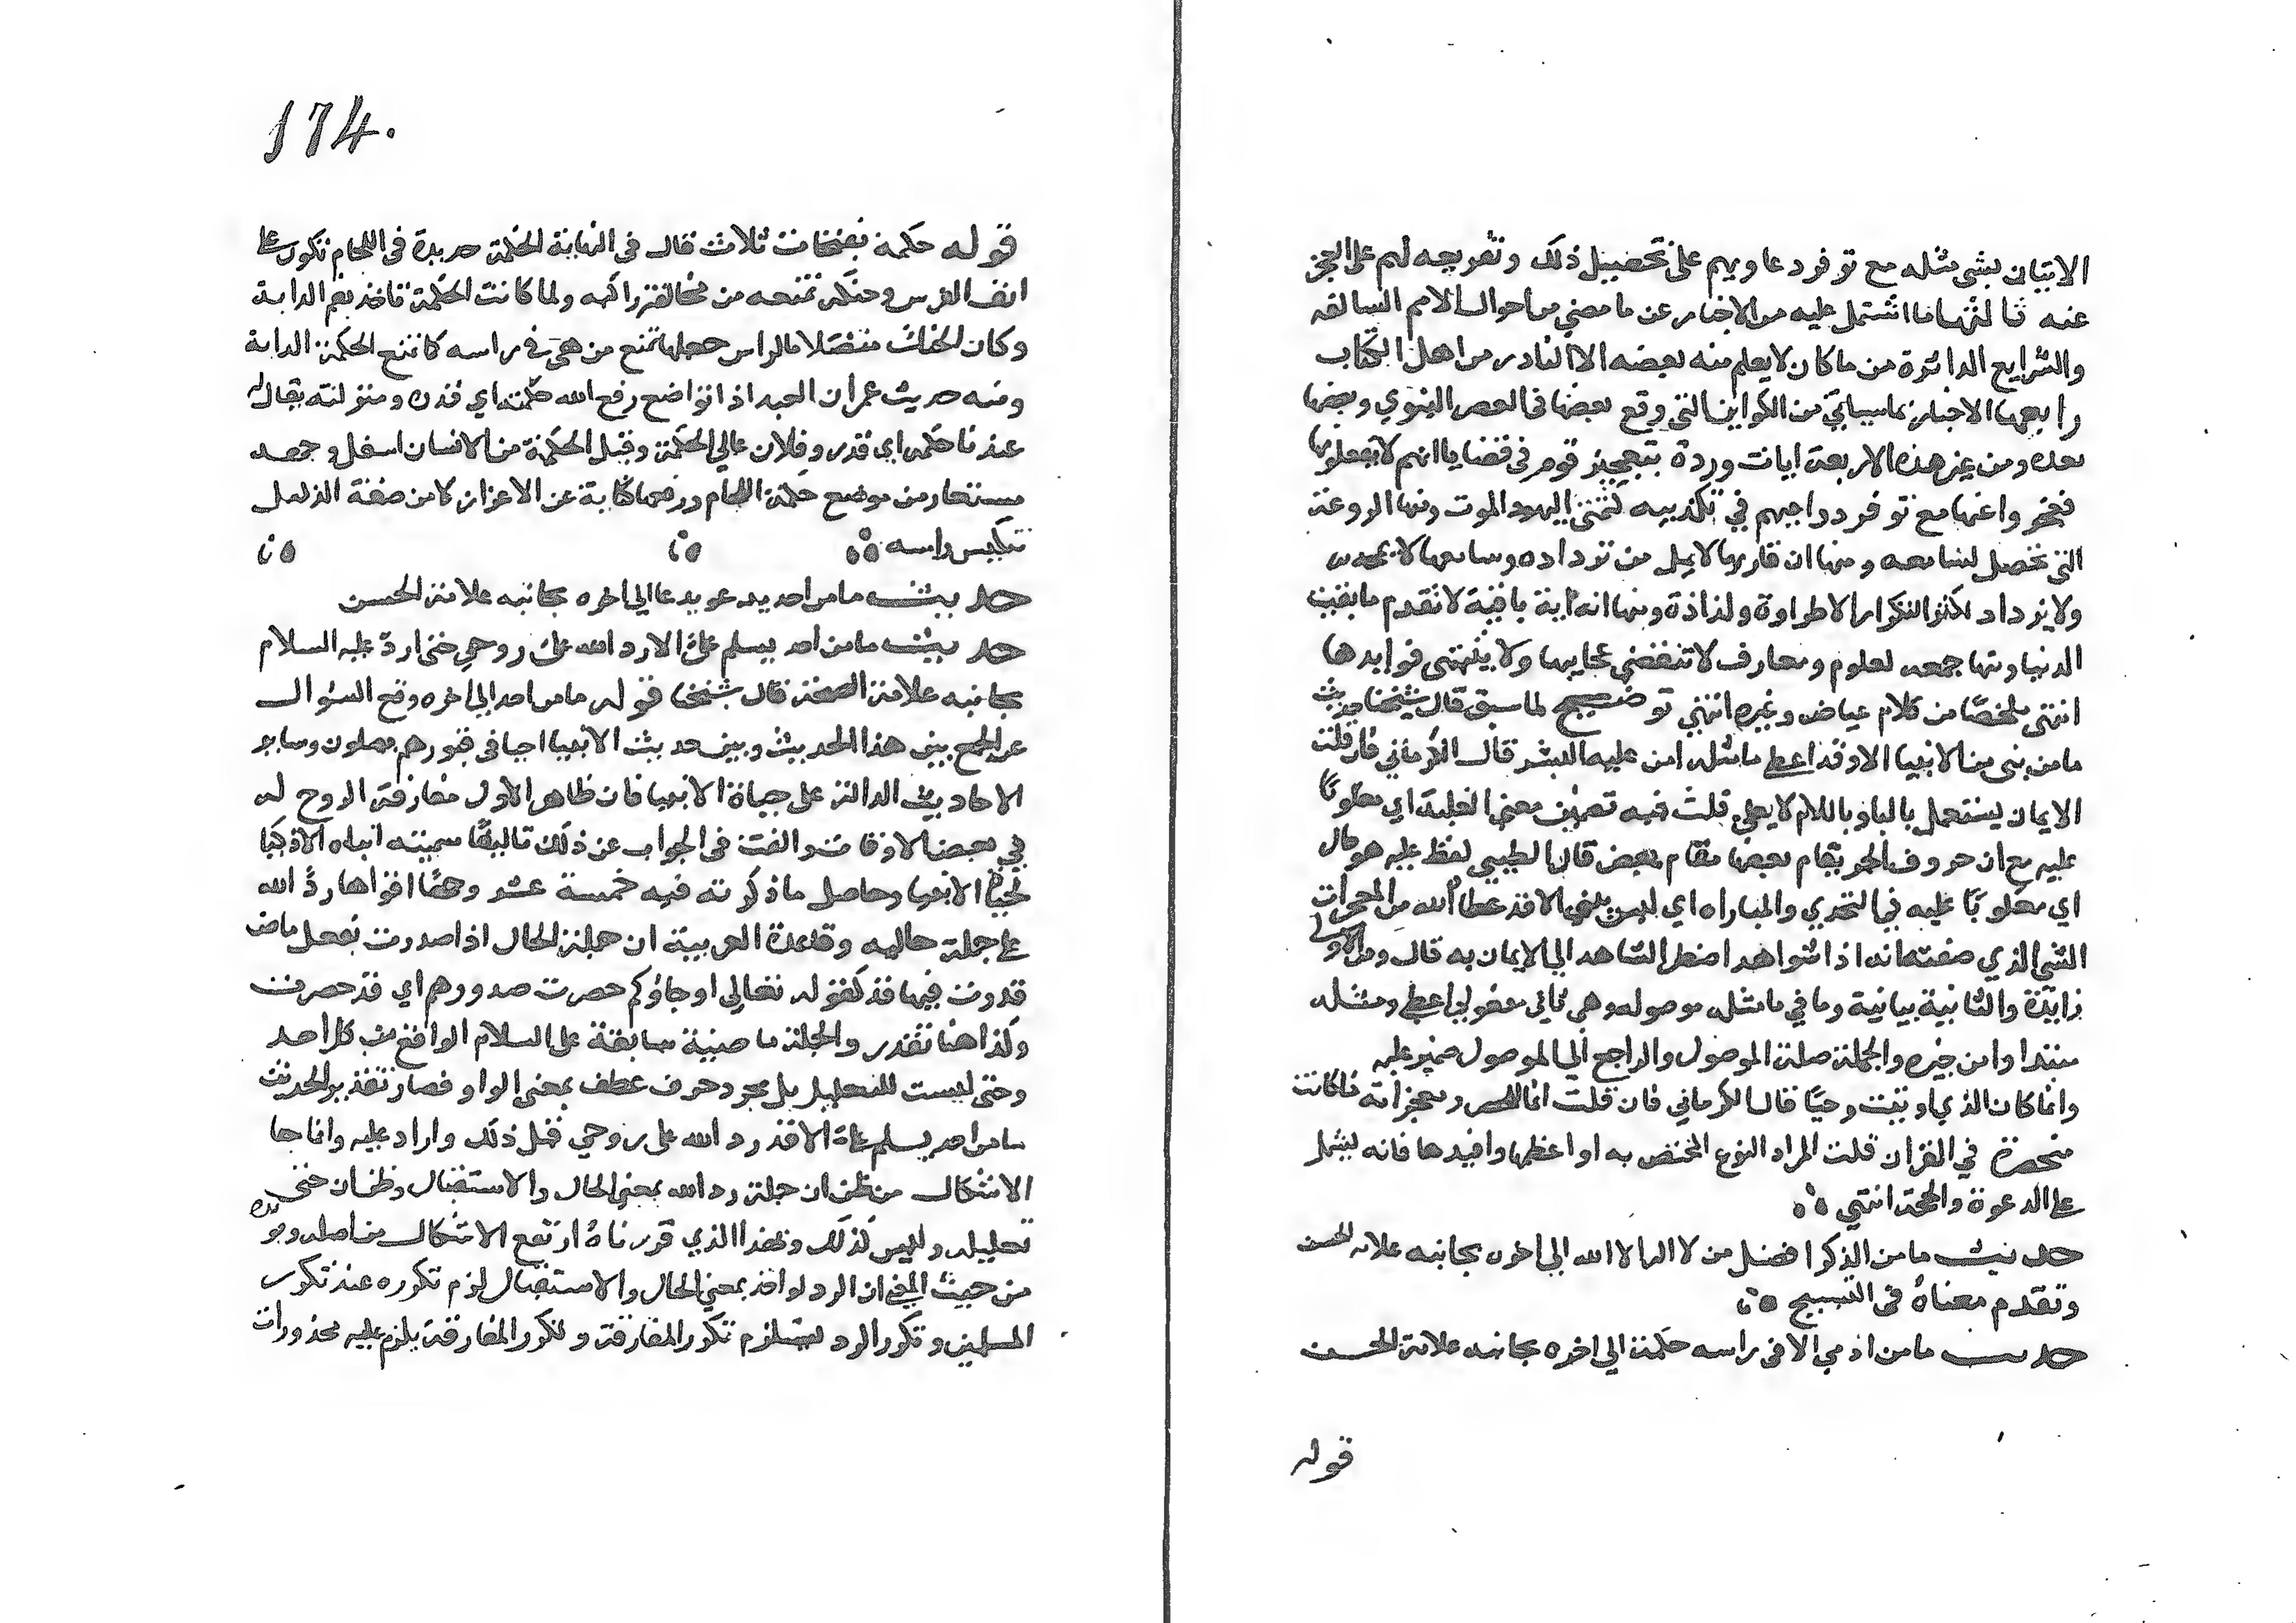 الاتيان بشي مثله مع توفر دعاويهم على تحصيل ذلك وتقريعه لهم على العجز
عنه ثالثها ما اشتمل عليه من الاخبار عن ما مضي من احوال الامم السالفه
والشرايع الداثرة من ما كان لا يعلم منه بعضه الا النادر من اهل الكتاب
رابعها الاخبار بما سياتي من الكواين التي وقع بعضها في العصر النبوي وبعضها
بعده ومن غير هذه الاربعة ايات وردة بتعجيز قوم في قضايا انهم لا يفعلونها
فعجزوا عنها مع توفر دواعيهم في تكذيبه كتمني اليهود الموت ومنها الروعة
التي تحصل لسامعه ومنها ان قاريها لا يمل من ترداده وسامعها لا يمجه
ولا يزداد بكثرة التكرار الا طراوة ولذاذة ومنها انه اية باقية لا تقدم ما بقيت
الدنيا ومنها جمعه لعلوم ومعارف لا تنقضي عجايبها ولا ينتهى فوايدها
انتهى ملخصًا من كلام عياض وغيره انتهي توضيح لما سبق قال شيخنا حديث
ما من نبى من الانبيا الا وقد اعطي ما مثله امن عليه البشر قال الكرماني فان قلت
الايمان يستعمل بالبا وباللام لا بعلى قلت فيه تضمين معنى الغلبة اي مغلوبًا
عليه مع ان حروف الجر يقام بعضها مقام بعض قال الطيبي لفظ عليه هو حال
اي مغلوبًا عليه في التحدي والمباراه اي ليس نبي الا قد اعطاه الله من المعجزات
الشي الذي صفته انه اذا شوهد اضطر الشاهد الي الايمان به قال ومن الاولى
زايدة والثانية بيانية وما في ما مثله موصوله وهي ثاني مفعولي اعطي ومثله
مبتدا وامن خبره والجملة صلة الموصول والراجع الي الموصول ضمير عليه
وانما كان الذي اوتيت وحيًا قال الكرماني فان قلت انما للحصر ومعجزاته ما كانت
منحصرة في القران قلت المراد النوع المختص به او اعظمها وافيدها فانه يشمل
على الدعوة والحجة انتهي
حديث ما من الذكر افضل من لا اله الا الله الي اخره بجانبه علامة الحسن
وتقدم معناهُ في التسبيح
حديث ما من ادمي الا في راسه حكمة الي اخره بجانبه علامة الحسن
قوله
174.
قوله حكمة بفتحات ثلاث قال في النهاية الحكمة حديدة في اللجام تكون على
انف الفرس وحنكه تمنعه من مخالفة راكبه ولما كانت الحكمة تاخذ بفم الدابة
وكان الحنك متصلا بالراس جعلها تمنع من هي في راسه كما تمنع الحكمة الدابة
ومنه حديث عمر ان العبد اذا تواضع رفع الله حكمته اي قدره ومنزلته يقال له
عندنا حكمه اي قدر وفلان عالي الحكمة وقيل الحكمة من الانسان اسفل وجهه
مستعار من موضع حكمة اللجام ورفعها كناية عن الاعزاز لان من صفة الذليل
تنكيس راسه
حديث ما من احد يدعو بدعا الي اخره بجانبه علامة الحسن
حديث ما من احد يسلم علىّ الا رد الله علىّ روحي حتى ارد عليه السلام
بجانبه علامة الصحة قال شيخنا قوله ما من احد الي اخره وقع السؤال
عن الجمع بين هذا الحديث وبين حديث الانبيا احيا في قبورهم يصلون وساير
الاحاديث الدالة على حياة الانبيا فان ظاهر الاول مفارقة الروح له
في بعض الاوقات والفت في الجواب عن ذلك تاليفًا سميته انباه الاذكيا
بحياة الانبيا وحاصل ما ذكرته فيه خمسة عشر وجهًا اقواها ردّ الله
علي جملة حاليه وقاعدة العربية ان جملة الحال اذا صدرت بفعل ماض
قدرت فيها قد كقوله تعالي او جاؤكم حصرت صدورهم اي قد حصرت
وكذا هنا تقدر والجملة ماضية سابقة على السلام الواقع من كل احد
وحتى ليست للتعليل بل مجرد حرف عطف بمعنى الواو فصار تقدير الحديث
ما من احد يسلم علىّ الا قد رد الله على روحي قبل ذلك واراد عليه وانما جا
الاشكال من ظن ان جملة رد الله بمعنى الحال والاستقبال وظن ان حتى
تعليله وليس كذلك وبهذا الذي قررناهُ ارتفع الاشكال من اصله ويويده
من حيث المعنى ان الرد لو اخذ بمعنى الحال والاستقبال لزم تكرره عند تكرر
المسلمين وتكرر الرد يستلزم تكرر المفارقة وتكرر المفارقة يلزم عليه محذورات